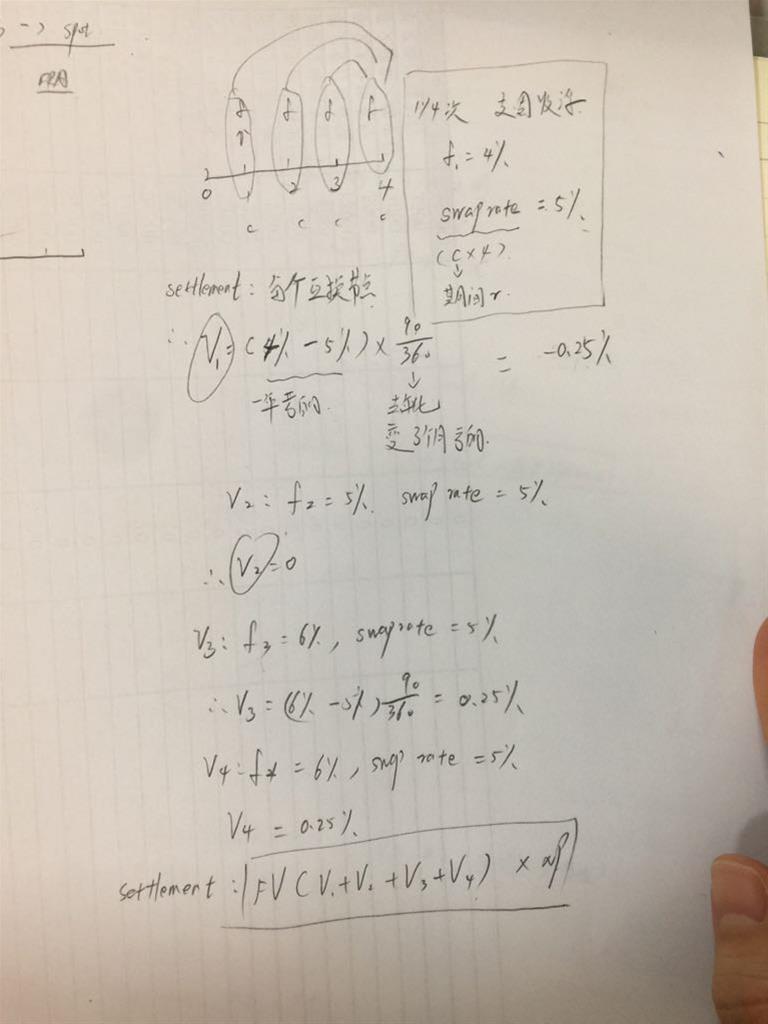 -> spot
FRA
f f f f
r
0 1 2 3 4
c c c c
1年4次 支固收浮
f₁ = 4%
swap rate = 5%
(c×4)
↓
期间r.
settlement: 每个互换节点
∴ V₁ = (4% - 5%) × 90/360 = -0.25%
一年的. 去年化
变3个月的.
V₂: f₂ = 5%. swap rate = 5%
∴ V₂ = 0
V₃: f₃ = 6%, swap rate = 5%
∴ V₃ = (6% - 5%) 90/360 = 0.25%
V₄: f₄ = 6%, swap rate = 5%
V₄ = 0.25%
settlement: FV(V₁+V₂+V₃+V₄) ×